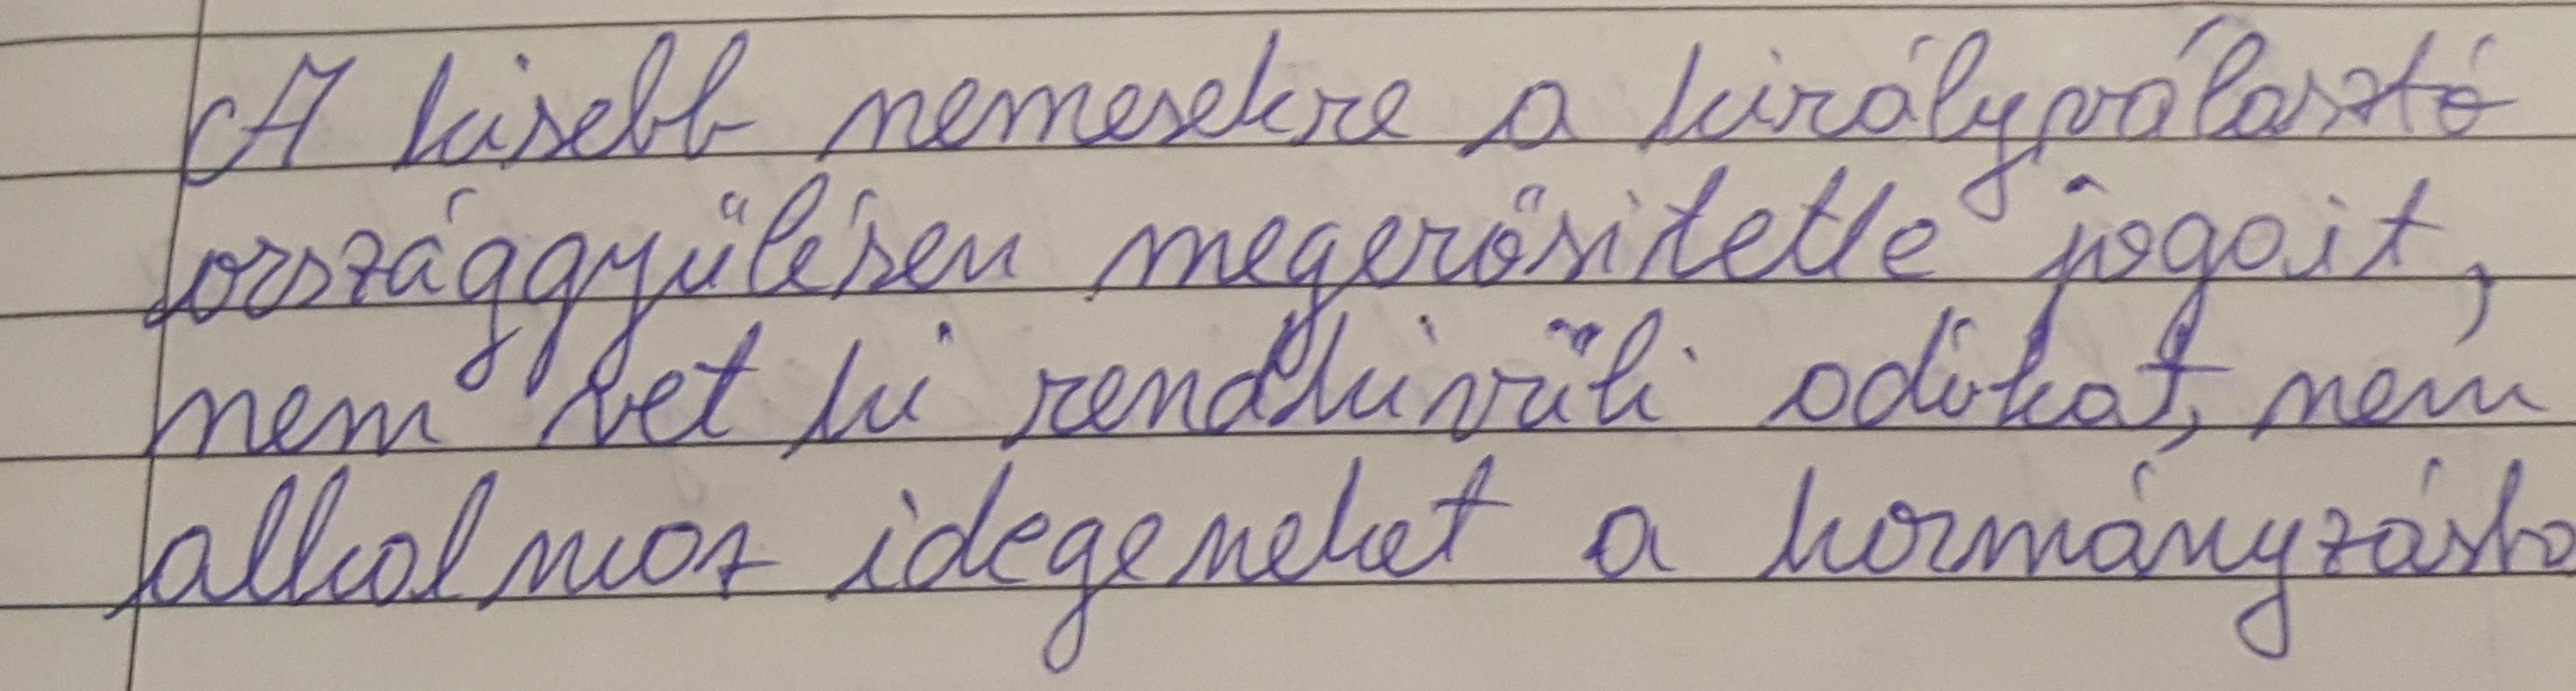 A kisebb nemesekre a királyválasztó
országgyűlésen megerősitette jogait,
nem vet ki rendkivüli adókat, nem
alkalmaz idegeneket a kormányzásba